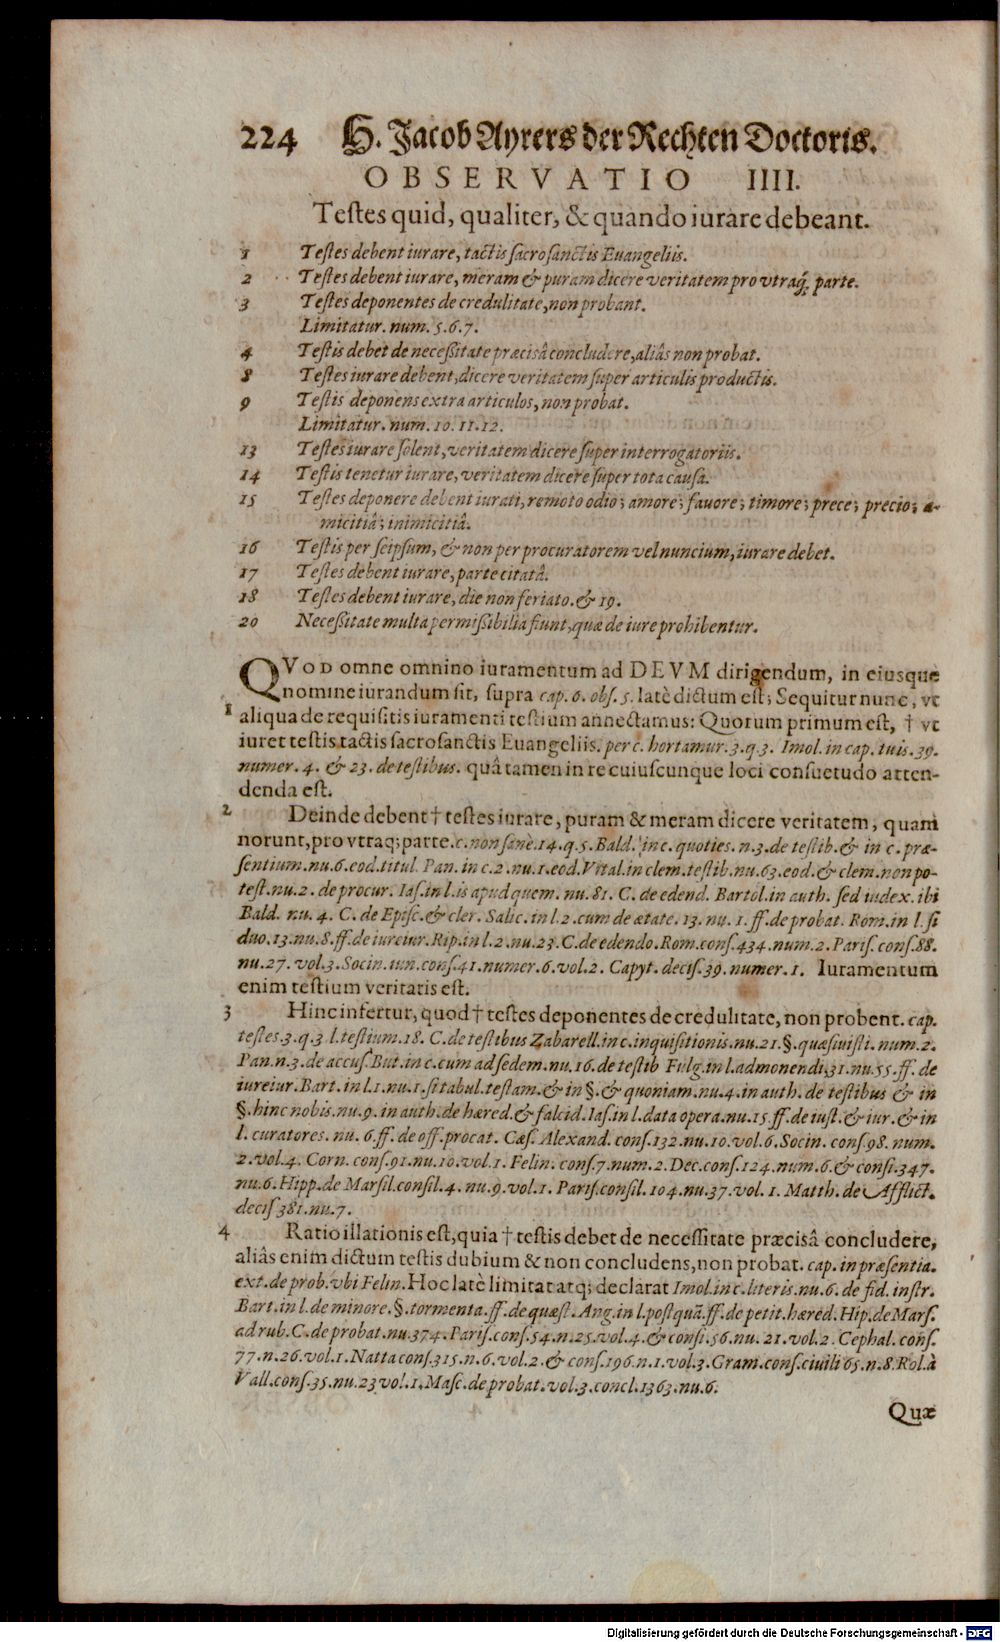 224 H. Jacob Ayrers der Rechten Doctoris.
OBSERVATIO IIII.
Testes quid, qualiter, & quando iurare debeant.
1 Testes debent iurare, tactis sacrosanctis Euangeliis.
2 Testes debent iurare, meram & puram dicere veritatem pro vtraq; parte.
3 Testes deponentes de credulitate, non probant.
Limitatur. num. 5.6.7.
4 Testis debet de necessitate præcisâ concludere, aliâs non probat.
8 Testes iurare debent, dicere veritatem super articulis productis.
9 Testis deponens extra articulos, non probat.
Limitatur. num. 10. 11. 12.
13 Testes iurare solent, veritatem dicere super interrogatoriis.
14 Testis tenetur iurare, veritatem dicere super tota causa.
15 Testes deponere debent iurati, remoto odio; amore; fauore; timore; prece; precio; a-
micitiâ; inimicitiâ.
16 Testis per seipsum, & non per procuratorem vel nuncium, iurare debet.
17 Testes debent iurare, parte citatâ.
18 Testes debent iurare, die non feriato. & 19.
20 Necessitate multa permissibilia fiunt, quæ de iure prohibentur.
QVOD omne omnino iuramentum ad DEVM dirigendum, in eiusque
nomine iurandum sit, supra cap. 6. obs. 5. latè dictum est; Sequitur nunc, vt
1 aliqua de requisitis iuramenti testium annectamus: Quorum primum est, † vt
iuret testis tactis sacrosanctis Euangeliis. per c. hortamur. 3. q. 3. Imol. in cap. tuis. 39.
numer. 4. & 23. de testibus. quâ tamen in re cuiuscunque loci consuetudo atten-
denda est.
2 Deinde debent † testes iurare, puram & meram dicere veritatem, quam
norunt, pro vtraq; parte. c. non sanè. 14. q. 5. Bald. in c. quoties. n. 3. de testib. & in c. præ-
sentium. nu. 6. eod. titul. Pan. in c. 2. nu. 1. eod. Vital. in clem. testib. nu. 63. eod. & clem. non po-
test. nu. 2. de procur. Ias. in l. is apud quem. nu. 81. C. de edend. Bartol. in auth. sed iudex. ibi
Bald. nu. 4. C. de Episc. & cler. Salic. in l. 2. cum de ætate. 13. nu. 1. ff. de probat. Rom. in l. si
duo. 13. nu. 8. ff. de iureiur. Rip. in l. 2. nu. 23. C. de edendo. Rom. cons. 434. num. 2. Paris. cons. 88.
nu. 27. vol. 3. Socin. iun. cons. 41. numer. 6. vol. 2. Capyt. decis. 39. numer. 1. Iuramentum
enim testium veritatis est.
3 Hinc infertur, quod † testes deponentes de credulitate, non probent. cap.
testes. 3. q. 3. l. testium. 18. C. de testibus Zabarell. in c. inquisitionis. nu. 21. §. quæsiuisti. num. 2.
Pan. n. 3. de accus. But. in c. cum ad sedem. nu. 16. de testib Fulg. in l. admonendi, 31. nu. 55. ff. de
iureiur. Bart. in l. 1. nu. 1. si tabul. testam. & in §. & quoniam. nu. 4. in auth. de testibus & in
§. hinc nobis. nu. 9. in auth. de hæred. & falcid. Ias. in l. data opera. nu. 15. ff. de iust. & iur. & in
l. curatores. nu. 6. ff. de off. procat. Cæs. Alexand. cons. 132. nu. 10. vol. 6. Socin. cons. 98. num.
2. vol. 4. Corn. cons. 91. nu. 10. vol. 1. Felin. cons. 7. num. 2. Dec. cons. 124. num. 6. & consi. 347.
nu. 6. Hipp. de Marsil. consil. 4. nu. 9. vol. 1. Paris. consil. 104. nu. 37. vol. 1. Matth. de Afflict.
decis 381. nu. 7.
4 Ratio illationis est, quia † testis debet de necessitate præcisâ concludere,
aliâs enim dictum testis dubium & non concludens, non probat. cap. in præsentia.
ext. de prob. vbi Felin. Hoc latè limitat atq; declarat Imol. in c. literis. nu. 6. de fid. instr.
Bart. in l. de minore. §. tormenta. ff. de quæst. Ang. in l. postquã. ff. de petit. hæred. Hip. de Mars.
ad rub. C. de probat. nu. 374. Paris. cons. 54. n. 25. vol. 4. & consi. 56. nu. 21. vol. 2. Cephal. cons.
77. n. 26. vol. 1. Natta cons. 315. n. 6. vol. 2. & cons. 196. n. 1. vol. 3. Gram. cons. ciuili 65. n. 8. Rol. à
Vall. cons. 35. nu. 23 vol. 1. Masc. de probat. vol. 3. concl. 1363. nu. 6.
Quæ
Digitalisierung gefördert durch die Deutsche Forschungsgemeinschaft - DFG